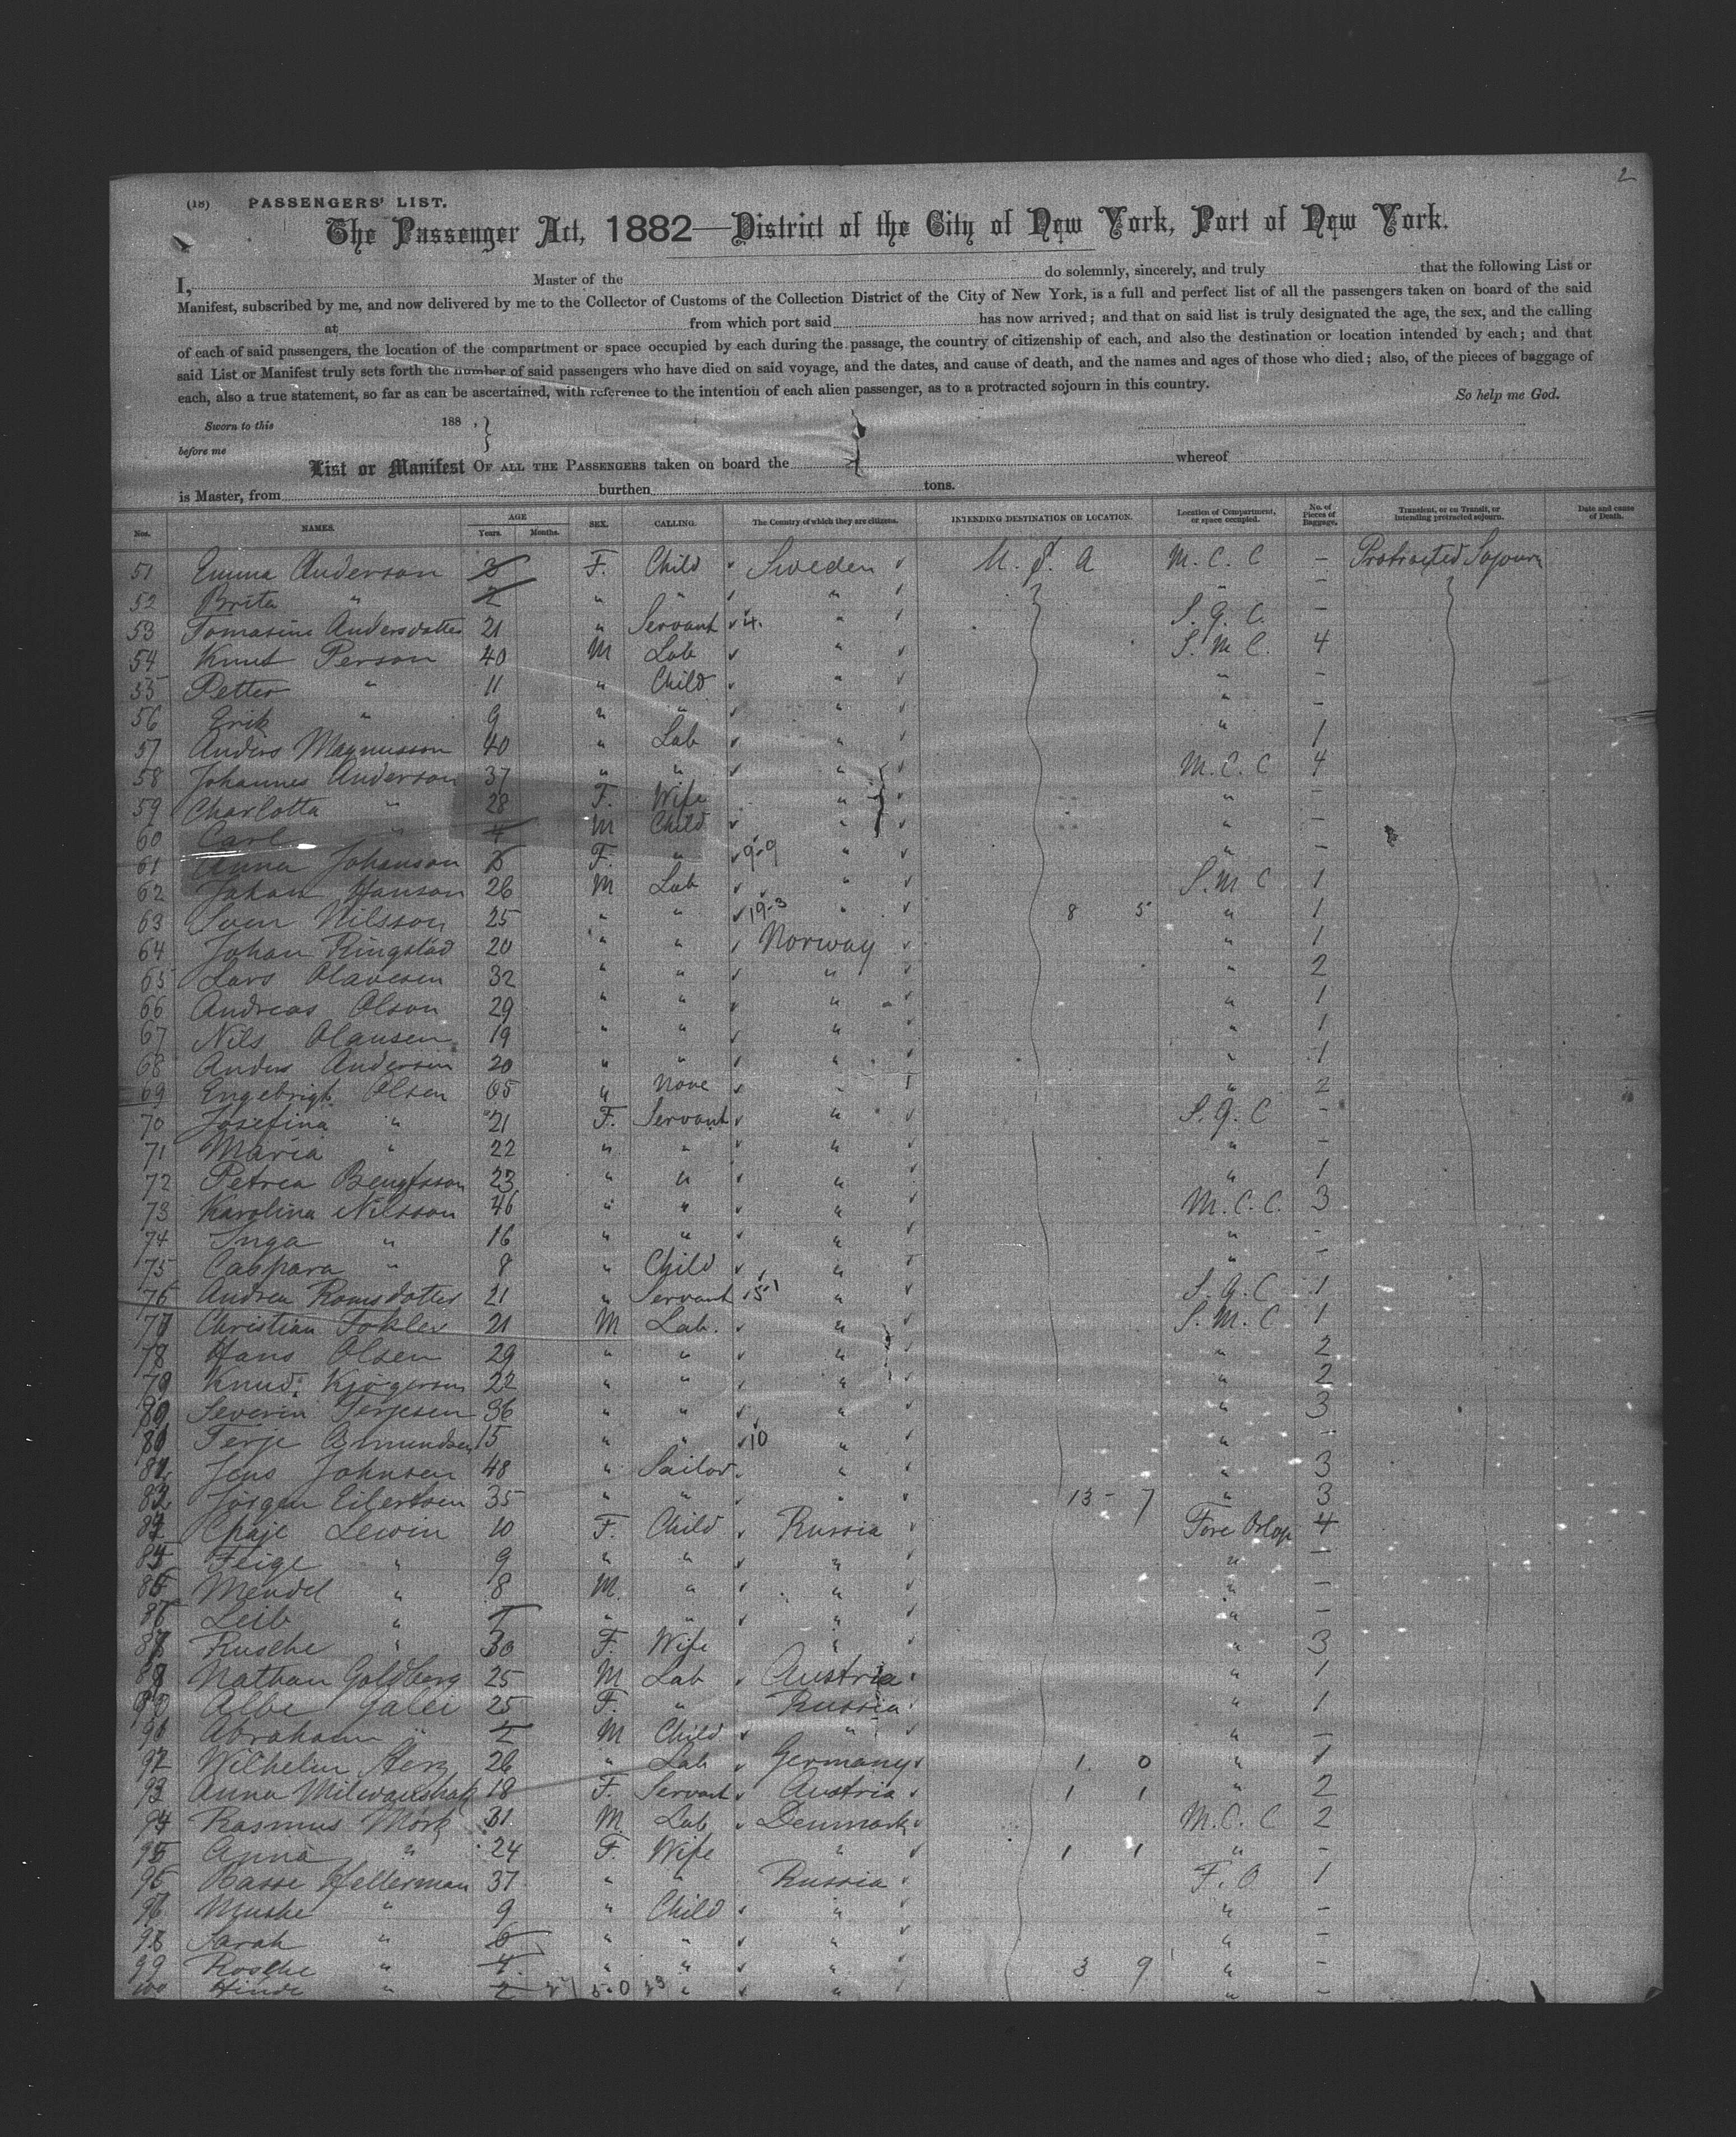 2
(18) PASSENGERS' LIST.
The Passenger Act, 1882—District of the City of New York, Port of New York.
I, Master of the do solemnly, sincerely, and truly that the following List or
Manifest, subscribed by me, and now delivered by me to the Collector of Customs of the Collection District of the City of New York, is a full and perfect list of all the passengers taken on board of the said
at from which port said has now arrived; and that on said list is truly designated the age, the sex, and the calling
of each of said passengers, the location of the compartment or space occupied by each during the passage, the country of citizenship of each, and also the destination or location intended by each; and that
said List or Manifest truly sets forth the number of said passengers who have died on said voyage, and the dates, and cause of death, and the names and ages of those who died; also, of the pieces of baggage of
each, also a true statement, so far as can be ascertained, with reference to the intention of each alien passenger, as to a protracted sojourn in this country. So help me God.
Sworn to this 188 , }
before me
List or Manifest OF ALL THE PASSENGERS taken on board the whereof
is Master, from burthen tons.
Nos. NAMES. AGE Years. Months. SEX. CALLING. The Country of which they are citizens. INTENDING DESTINATION OR LOCATION. Location of Compartment, or space occupied. No. of Pieces of Baggage. Transient, or en Transit, or intending protracted sojourn. Date and cause of Death.
51 Emma Anderson F. Child Sweden U. S. A M. C. C – Protracted Sojourn
52 Brita " 2 " " " " –
53 Tomasine Andersdotter 21 " Servant 4. " S. G. C. –
54 Knut Person 40 M Lab " S. M C. 4
55 Petter " 11 " Child " " –
56 Erik " 9 " " " " –
57 Anders Magnusson 40 " Lab " " 1
58 Johannes Anderson 37 " " " M. C. C 4
59 Charlotta " 28 F. Wife " " –
60 Carl " 4 M Child " " –
61 Anna Johanson F. " 9-9 " " –
62 Johan Hanson 26 M Lab " S. M C 1
63 Sven Nilsson 25 " " 19-3 " 8 5 " 1
64 Johan Ringstad 20 " " Norway " 1
65 Lars Olavesen 32 " " " " 2
66 Andreas Olson 29 " " " " 1
67 Nils Olausen 19 " " " " 1
68 Anders Andersen 20 " " " " 1
69 Engebrigt Olsen 65 " None " " 2
70 Josefina " 21 F. Servant " S. G. C –
71 Maria " 22 " " " " –
72 Petrea Bengtsson 23 " " " " 1
73 Karolina Nilsson 46 " " " M. C. C. 3
74 Inga " 16 " " " " –
75 Caspara " 8 " Child " " –
76 Andrea Romsdotter 21 " Servant 5-1 " S. G. C 1
77 Christian Fokler 21 M Lab. " S. M. C 1
78 Hans Olsen 29 " " " " 2
79 Knud 22 " " " " 2
80 Severin Terjesen 36 " " " " 3
81 Terje Asmundsen 15 " " 10 " " –
82 Jens Johnsen 48 " Sailor " " 3
83 Jörgen Eilertsen 35 " " " 13 – 7 " 3
84 Chaje Lewin 10 F. Child Russia Fore Orlop 4
85 Feige " 9 " " " " –
86 Mendel " 8 M. " " " –
87 Leib " " " " " –
88 Rusche " 30 F. Wife " " 3
89 Nathan Goldberg 25 M Lab Austria " 1
90 Albe Galei 25 F. " Russia " 1
91 Abraham " 2 M Child " " –
92 Wilhelm Herz 26 " Lab Germany 1. 0 " 1
93 Anna 18 F. Servant Austria 1 1 " 2
94 Rasmus Mork 31 M. Lab Denmark M. C. C 2
95 Anna " 24 F. Wife " 1 1 " –
96 Basse Hellerman 37 " " Russia F. O. 1
97 Mushe " 9 " Child " " –
98 Sarah " 6 " " " " –
99 Rosche " 4 " " " 3 9 " –
100 Hinde " 2 5-0 " " " –